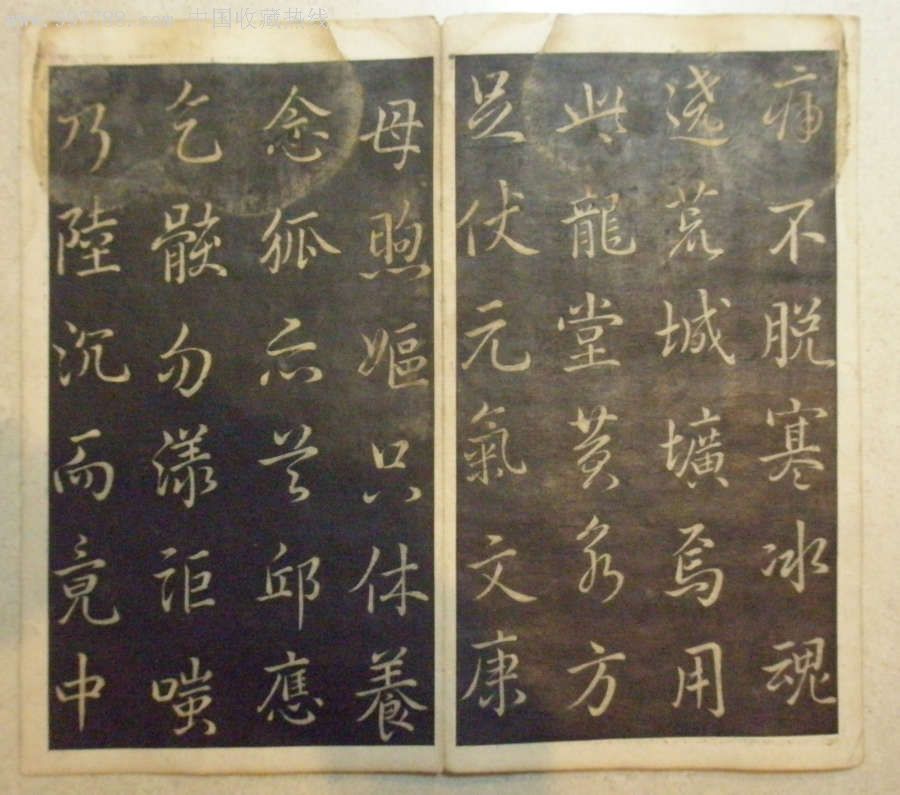 www.997788.com 中国收藏热线
痛不脱寒冰魂
逸荒城壙焉用
此龍堂黄泉方
足伏元氣文康
母煦嫗只休養
念狐亦首邱應
乞骸勿漾詎嗤
乃陸沉而竟中